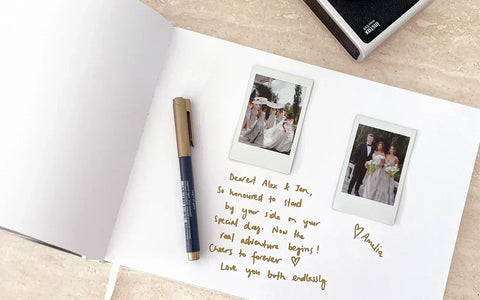 Dearest Alex & Jen,
So honoured to stand
by your side on your
special day. Now the
real adventure begins!
Cheers to forever ♡
Love you both endlessly
♡ Amelia
instax